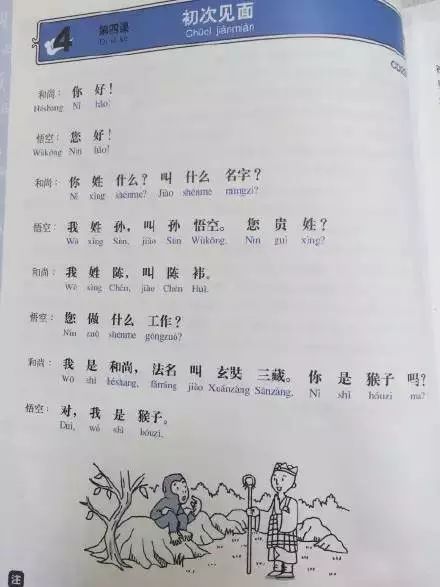 4 第四课 初次见面
Dì sì kè Chūcì jiànmiàn
和尚: 你 好!
Héshang Nǐ hǎo!
悟空: 您 好!
Wùkōng Nín hǎo!
和尚: 你 姓 什么? 叫 什么 名字?
Nǐ xìng shénme? Jiào shénme míngzi?
悟空: 我 姓 孙, 叫 孙 悟空。 您 贵 姓?
Wǒ xìng Sūn, jiào Sūn Wùkōng. Nín guì xìng?
和尚: 我 姓 陈, 叫 陈 祎。
Wǒ xìng Chén, jiào Chén Huī.
悟空: 您 做 什么 工作?
Nín zuò shénme gōngzuò?
和尚: 我 是 和尚, 法名 叫 玄奘 三藏。 你 是 猴子 吗?
Wǒ shì héshang, fǎmíng jiào Xuánzàng Sānzàng. Nǐ shì hóuzi ma?
悟空: 对, 我 是 猴子。
Duì, wǒ shì hóuzi.
注